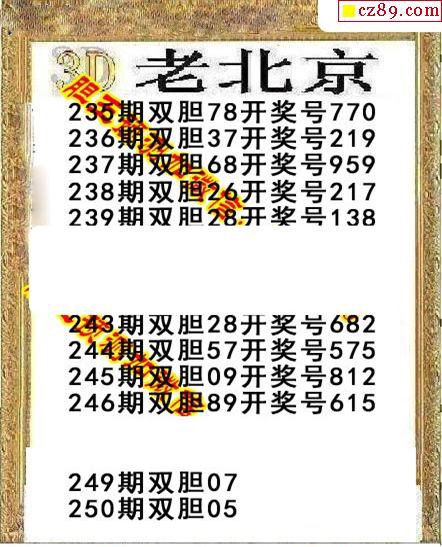 cz89.com
3D 老北京
235期双胆78开奖号770
236期双胆37开奖号219
237期双胆68开奖号959
238期双胆26开奖号217
239期双胆28开奖号138
243期双胆28开奖号682
244期双胆57开奖号575
245期双胆09开奖号812
246期双胆89开奖号615
249期双胆07
250期双胆05